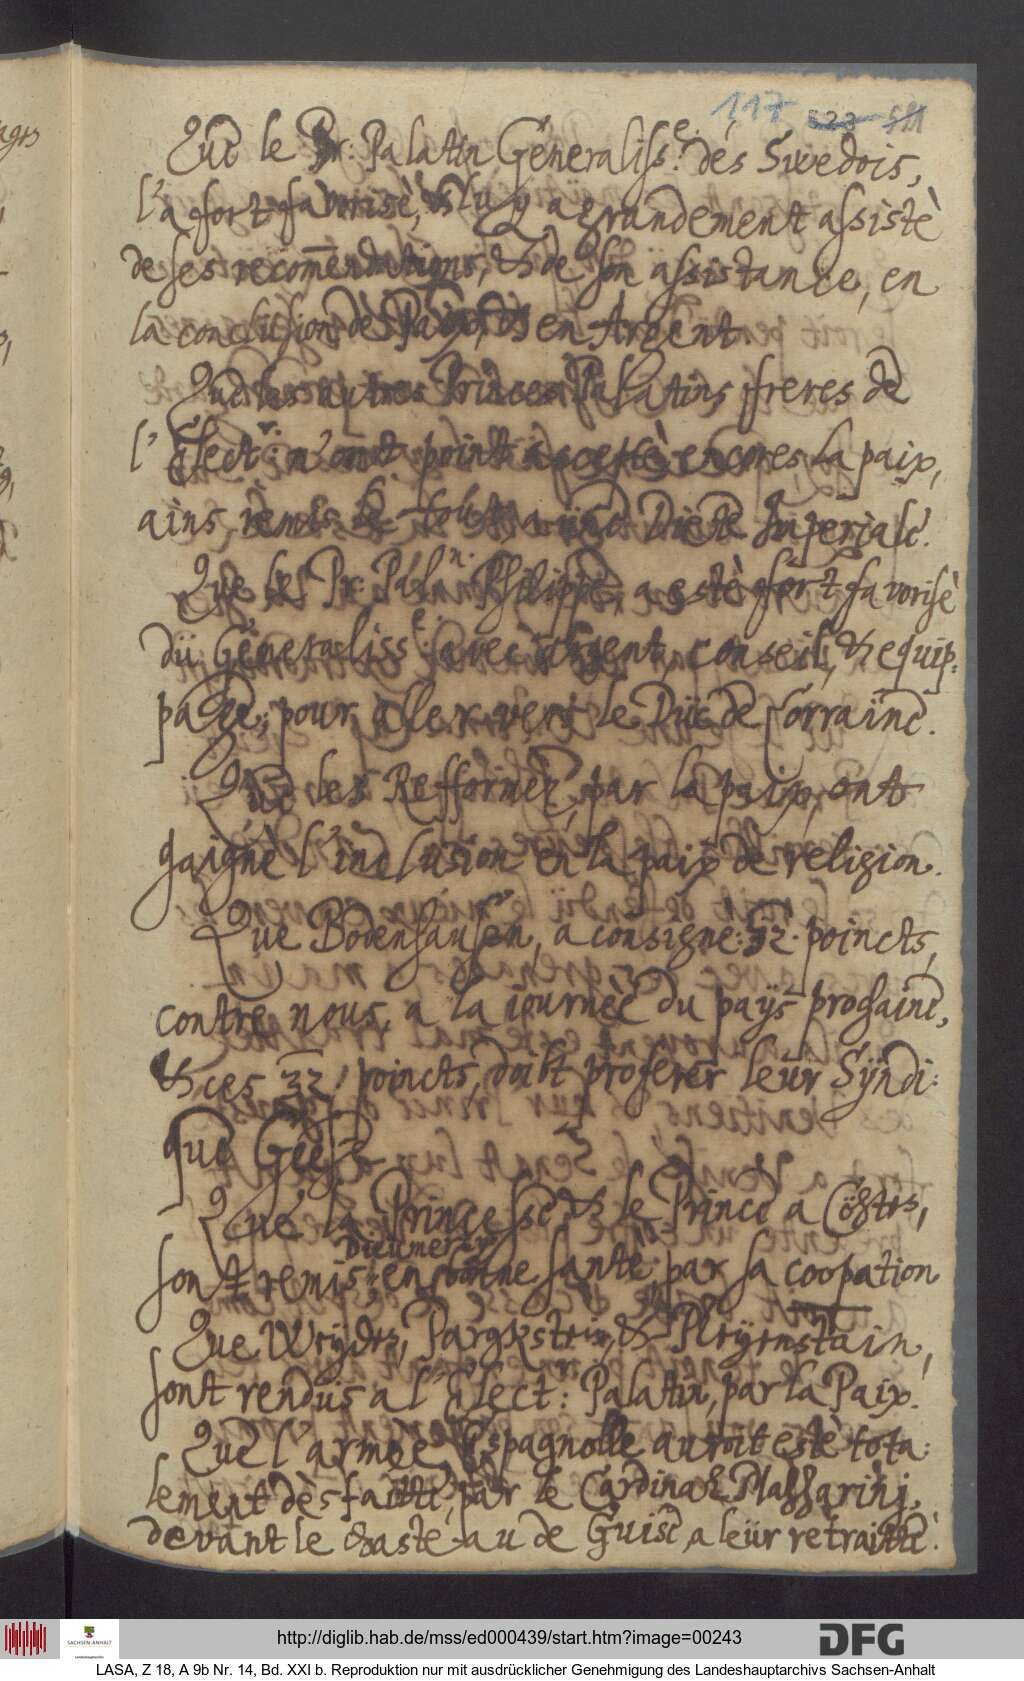 117 528 511
Que le Pr: Palatin Generaliss.e des Swedois,
l'a fort favorisè, & luy a grandement assistè
de ses recom̅endations, & de son assistance, en
la conclusion de Paix, & en Argent
Que les autres Princes Palatins freres de
l'Elect.r: n'ont point acceptè encores, la paix,
ains, remis le tout, a une Diete Imperiale.
Que le Pr: Pal.n: Philippe, a estè fort favorisè
dü Generaliss.e: avec argent, conseil, & equip-
page, pour aller vers le Düc de Lorraine.
Que les Refformèz, par la paix, ont
gaignè l'inclusion en la paix de religion.
Que Bodenhausen, a consigne: 32. poincts,
contre nous, a la iournée du paÿs prochaine,
& ces 32 poincts, doibt proferer leür Sÿndi-
que Geese
Que la Princesse & le Prince a Cöhten,
Dieu mercy
sont remis; en bonne sante, par sa coopation
Que Weÿden, Pargkstein, & Pleÿenstain,
sont renduis a l'Elect: Palatin, par la Paix.
Que l'armee Espagnolle auroit estè tota-
lement dèsfaitte, par le Cardinal Mazzarinj,
devant le chasteau de Guise, a leür retraitte.
http://diglib.hab.de/mss/ed000439/start.htm?image=00243
SACHSEN-ANHALT
DFG
LASA, Z 18, A 9b Nr. 14, Bd. XXI b. Reproduktion nur mit ausdrücklicher Genehmigung des Landeshauptarchivs Sachsen-Anhalt